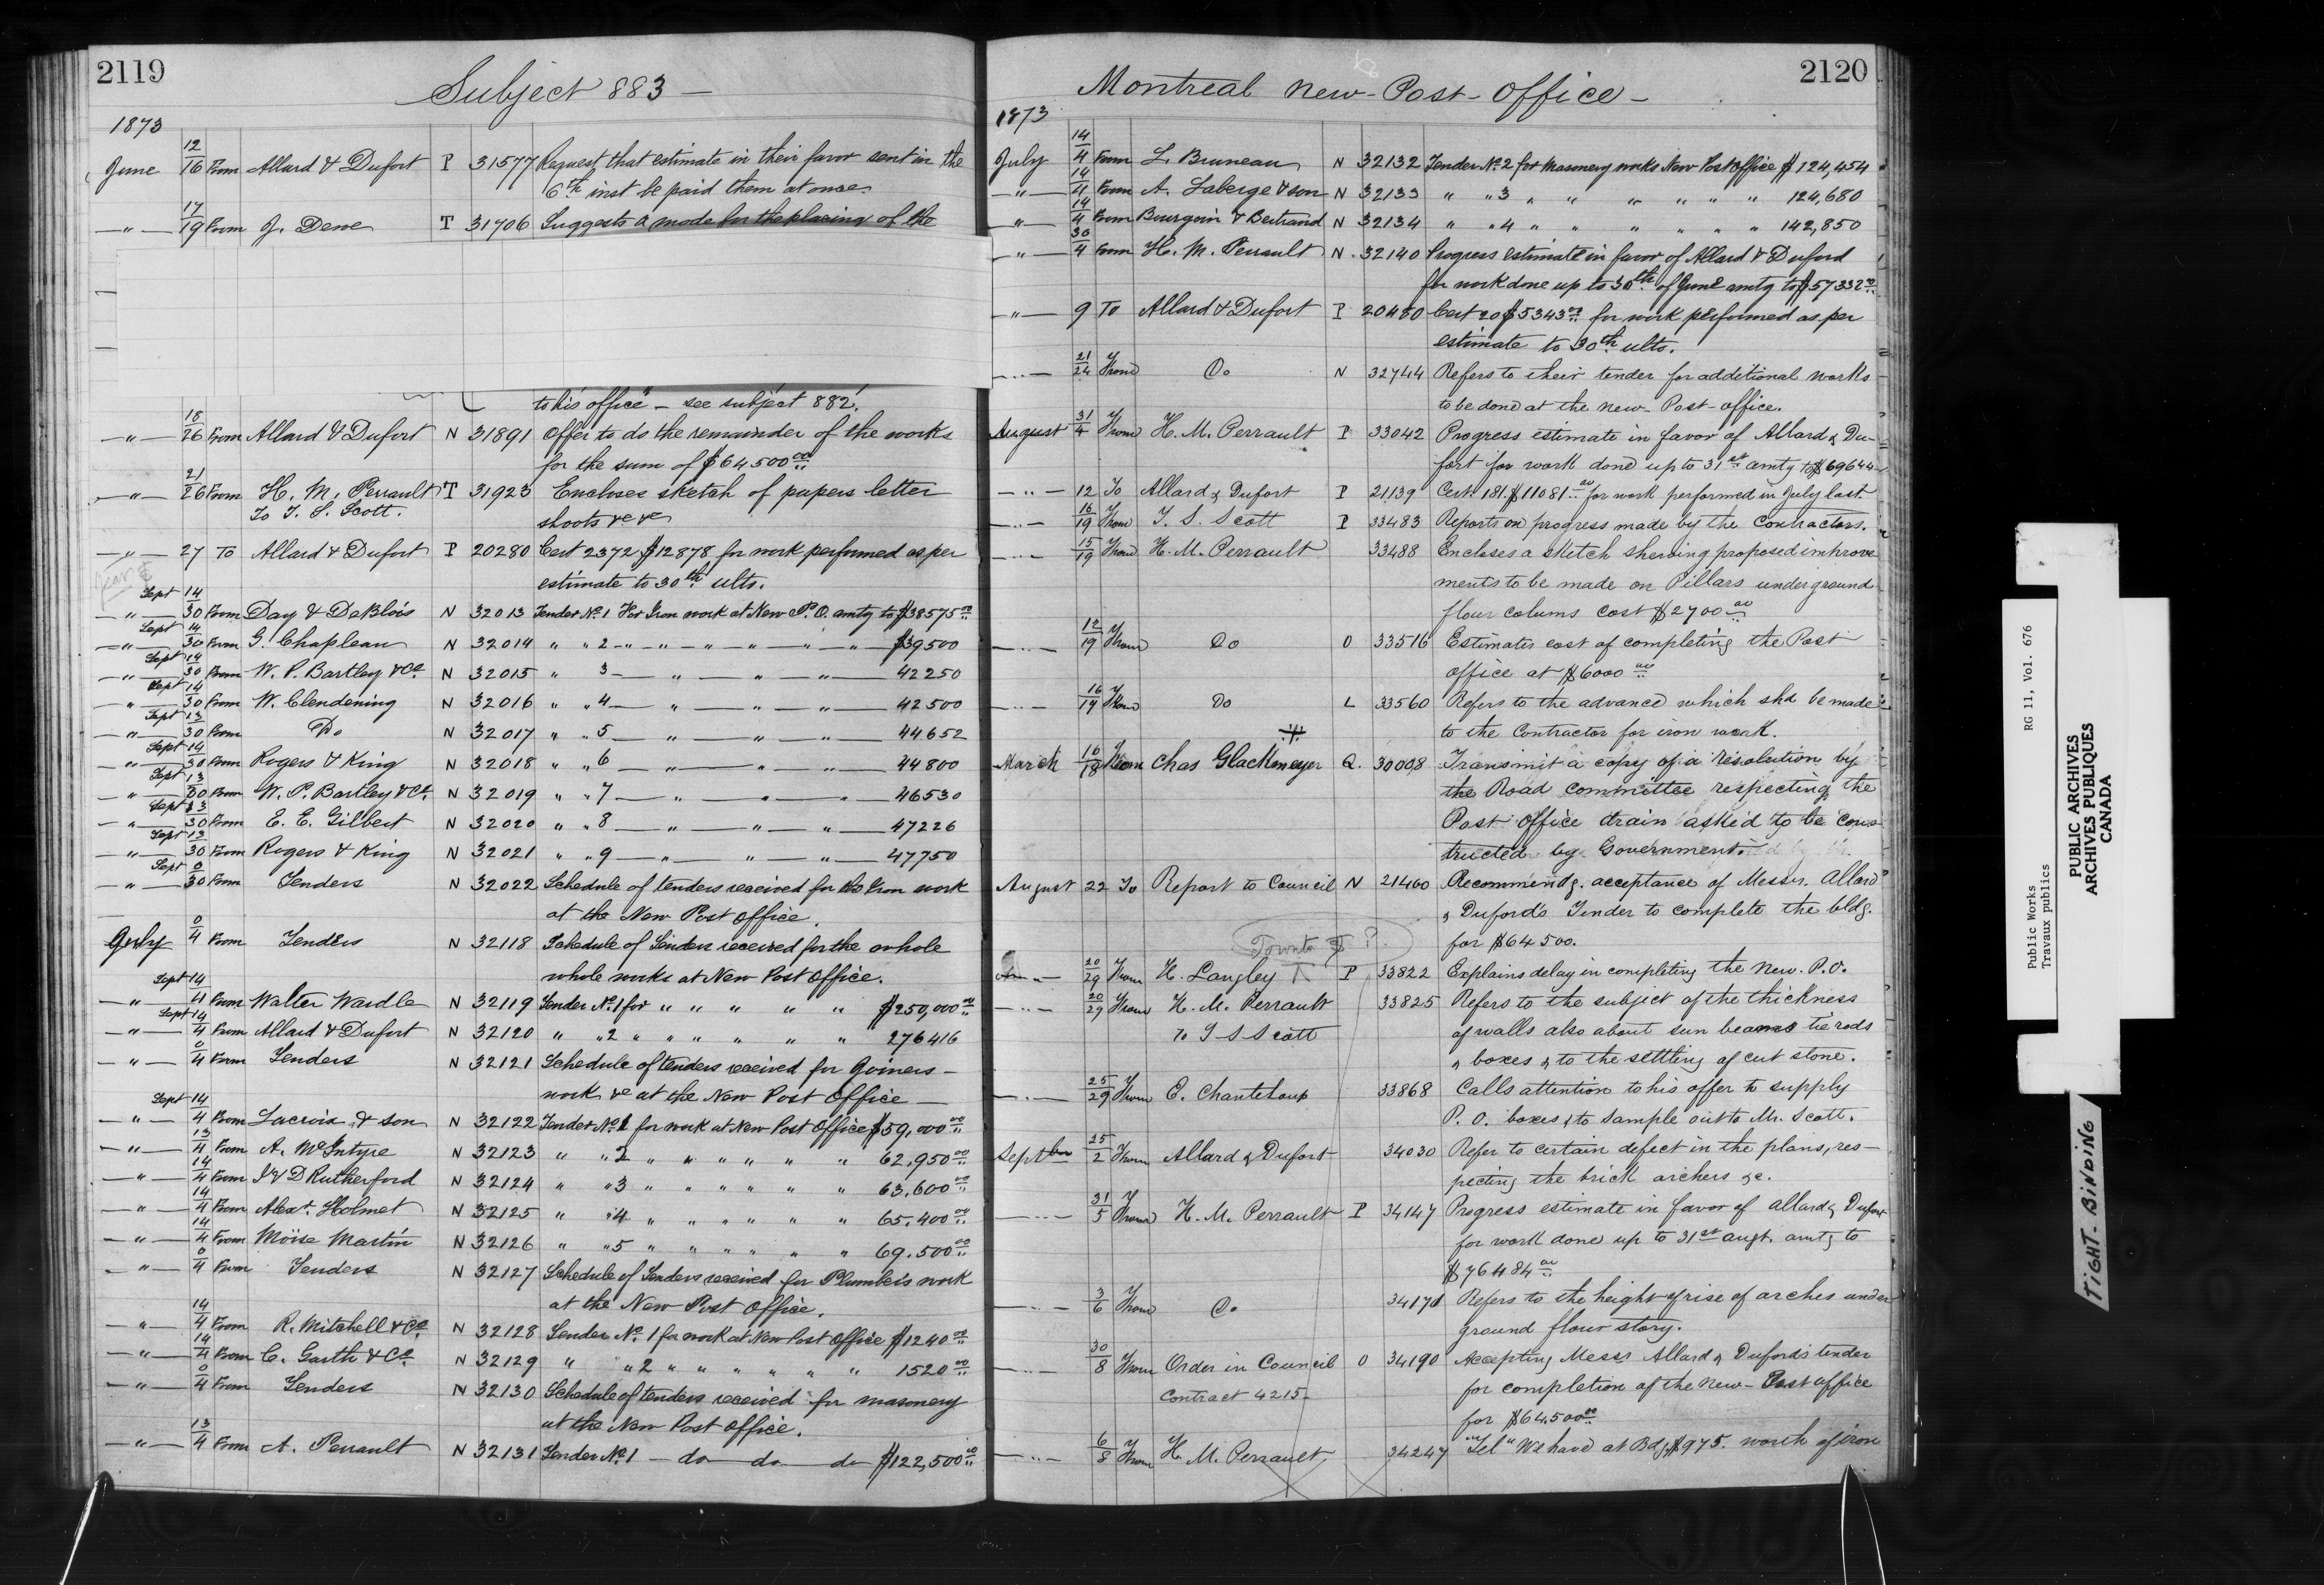 2119
Subject 883 —
1873
June 12/16 From Allard & Dufort P 31577 Request that estimate in their favor sent in the
6th inst be paid them at once.
— " — 17/19 From J. Dene T 31706 Suggests a mode for the placing of the
to his office" — see subject 882.
— " — 18/26 From Allard & Dufort N 31891 Offer to do the remainder of the works
for the sum of $64500 00
— " — 21/26 From H. M. Perrault T 31923 Encloses sketch of papers letter
To T. S. Scott. shoots &c &c
— " — 27 To Allard & Dufort P 20280 Cert 2372 $12878 for work performed as per
estimate to 30th ulto.
— " — Sept 14/30 From Day & DeBlois N 32013 Tender No 1 For Iron work at New P.O. amtg to $38575 00
— " — Sept 14/30 From G. Chapleau N 32014 " " 2 — " — " — " — " — " — " — $39500
— " — Sept 14/30 From W. P. Bartley & Co. N 32015 " 3 — " — " — " — 42250
— " — Sept 14/30 From W. Clendening N 32016 " " 4 — " — " — " — 42500
— " — Sept 13/30 From Do N 32017 " " 5 — " — " — " — 44652
— " — Sept 14/30 From Rogers & King N 32018 " " 6 — " — " — " — 44800
— " — Sept 13/30 From W. P. Bartley & Co. N 32019 " " 7 — " — " — " — 46530
— " — Sept 13/30 From E. E. Gilbert N 32020 " " 8 — " — " — " — 47226
— " — Sept 13/30 From Rogers & King N 32021 " " 9 — " — " — " — 47750
— " — Sept 0/30 From Tenders N 32022 Schedule of tenders received for the Iron work
at the New Post Office.
July 0/4 From Tenders N 32118 Schedule of Tenders received for the whole
whole works at New Post Office.
— " — Sept 14/4 From Walter Wardle N 32119 Tender No 1 for " " " " " $250,000 00
— " — Sept 14/4 From Allard & Dufort N 32120 " " 2 " " " " " " 276416
— " — 0/4 From Tenders N 32121 Schedule of tenders received for Joiners —
work &c at the New Post Office —
— " — Sept 14/4 From Lacroix & son N 32122 Tender No 1 for work at New Post Office $59,000 00
— " — 13/4 From A. McIntyre N 32123 " " 2 " " " " " " 62,950 00
— " — 14/4 From J & D Rutherford N 32124 " " 3 " " " " " " 63.600 00
— " — 14/4 From Alexr. Holmet N 32125 " " 4 " " " " " " 65.400 00
— " — 14/4 From Moïse Martin N 32126 " " 5 " " " " " " 69.500 00
— " — 0/4 From Tenders N 32127 Schedule of Tenders received for Plumbers work
at the New Post Office.
— " — 14/4 From R. Mitchell & Co N 32128 Tender No. 1 for work at New Post Office $1240 00
— " — 14/4 From C. Garth & Co. N 32129 " " 2 " " " " " " 1520 00
— " — 0/4 From Tenders N 32130 Schedule of tenders received for masonery
at the New Post Office.
— " — 13/4 From A. Perrault N 32131 Tender No 1 — do — do — do $122,500 00
2120
Montreal New-Post-Office —
1873
July 14/4 From L. Bruneau N 32132 Tender No. 2 for Masonery works New Post Office $124,454
— " — 14/4 From A. Laberge & son N 32133 " " 3 " " " " " " 124,680
— " — 14/4 From Bourgoin & Bertrand N 32134 " " 4 " " " " " " 142,850
— " — 30/4 From H. M. Perrault N. 32140 Progress estimate in favor of Allard & Duford
for work done up to 30th of June amtg to $57332 00
— " — 9 To Allard & Dufort P 20480 Cert 20 $5343 00 for work performed as per
estimate to 30th ulto.
— " — 21/24 From Do N 32744 Refers to their tender for additional works
to be done at the new-Post-office.
August 31/4 From H. M. Perrault P 33042 Progress estimate in favor of Allard & Du-
fort for work done up to 31st amtg to $69644
— " — 12 To Allard & Dufort P 21139 Cert. 181. $11081 00 for work performed in July last.
— " — 16/19 From T. S. Scott P 33483 Reports on progress made by the Contractors.
— " — 15/19 From H. M. Perrault 33488 Encloses a sketch shewing proposed improve
ments to be made on Pillars under ground
flour colums cost $2700 00
— " — 12/19 From Do O 33516 Estimates cost of completing the Post
office at $6000 00
— " — 16/19 From Do L 33560 Refers to the advance which shd be made
to the Contractor for iron work.
March 16/18 From Chas Glackmeyer Q. 30008 Transmit a copy of a resolution by
the Road Committee respecting the
Post office drain asked to be cons
tructed by Government.
August 22 To Report to Council N 21400 Recommendg. acceptance of Messrs. Allard
& Duford's Tender to complete the bldg.
Toronto ? for $64500.
— " — 20/29 From H. Langley P 33822 Explains delay in completing the New. P.O.
— " — 20/29 From H. M. Perrault 33825 Refers to the subject of the thickness
To T S Scott of walls also about sun beams tie rods
& boxes & to the settling of cut stone.
— " — 25/29 From E. Chanteloup 33868 Calls attention to his offer to supply
P. O. boxes & to sample out to Mr. Scott.
Septber 25/2 From Allard & Dufort 34030 Refer to certain defect in the plans, res—
pecting the brick archers &c.
— " — 31/5 From H. M. Perrault P 34147 Progress estimate in favor of Allard & Dufort
for work done up to 31st augt. amtg to
$76484 00
— " — 3/6 From Do 34170 Refers to the height of rise of arches under
ground flour story.
— " — 30/8 From Order in Council O 34190 Accepting Messrs Allard & Duford's tender
Contract 4215 — for completion of the New-Post office
for $64.500 00
— " — 6/8 From H. M. Perrault 34247 "Tel" We have at Bdg $975. worth of iron
RG 11, Vol. 676
Public Works
Travaux publics
PUBLIC ARCHIVES
ARCHIVES PUBLIQUES
CANADA
TIGHT-BINDING